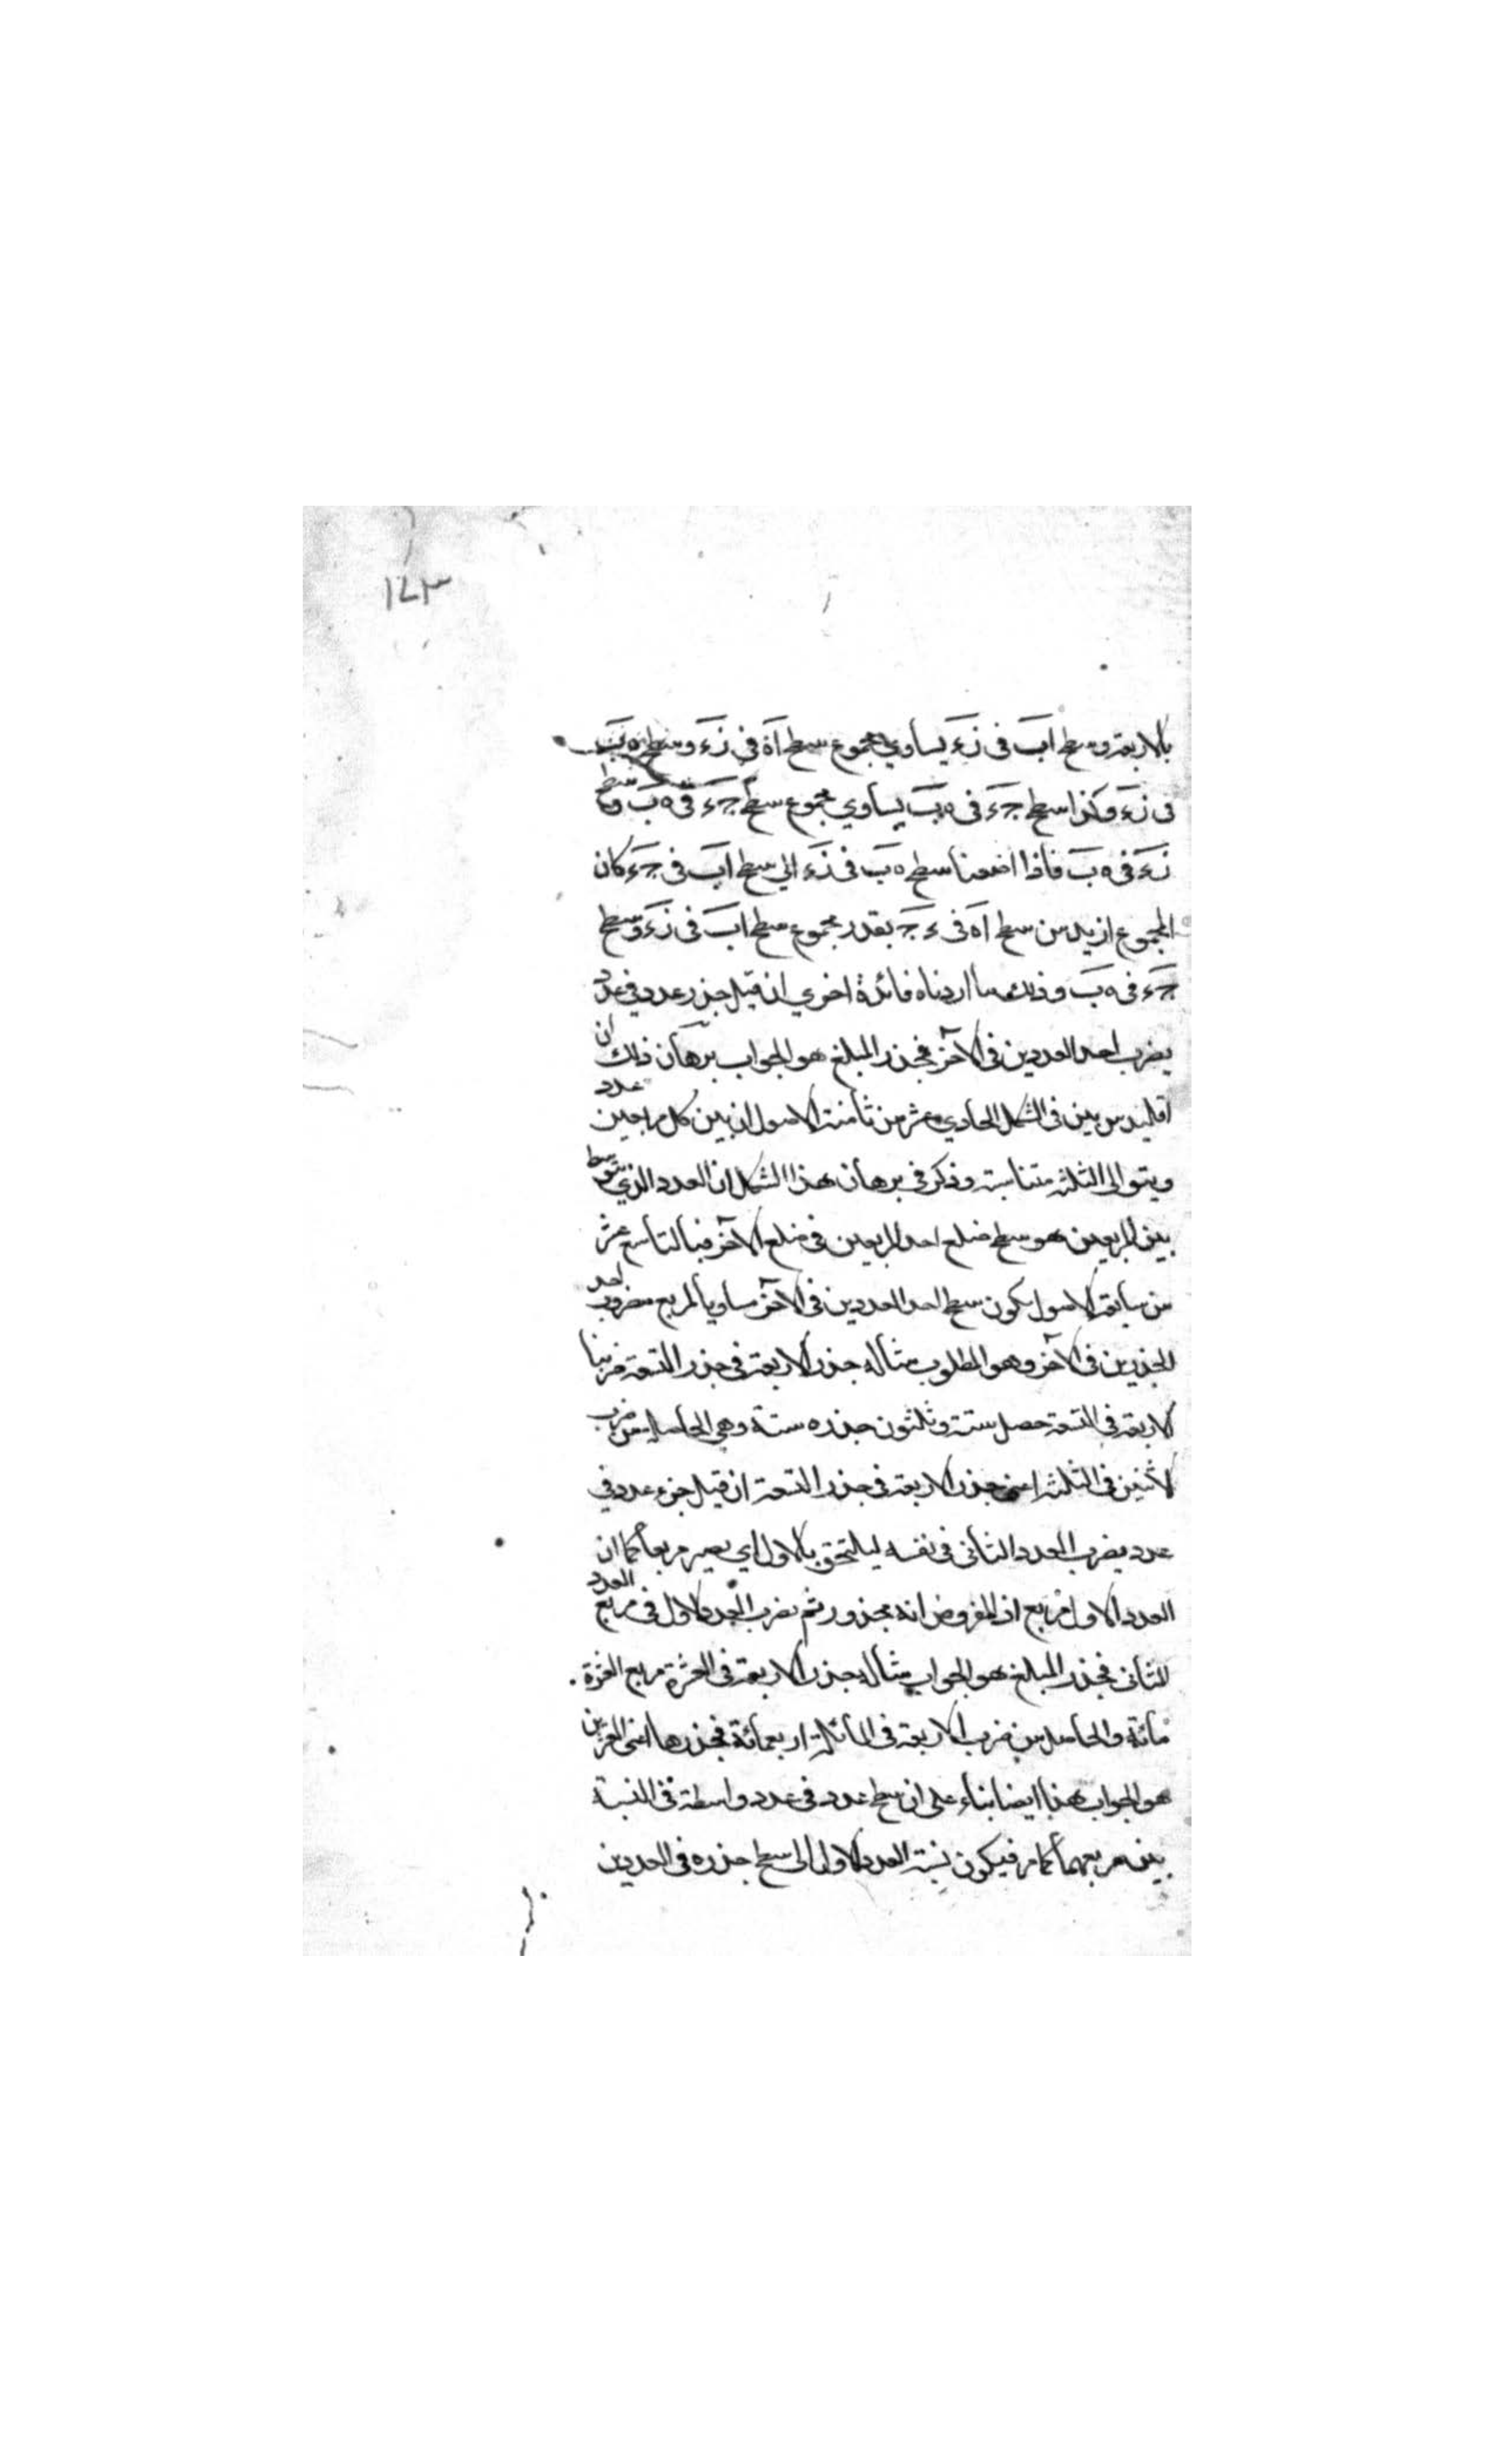 ١٤٣
بالاربعة وسطح اب في زء يساوي مجموع سطح اه في زء وسطح ه ب
في زء وكذا سطح جء في ه ب يساوي مجموع سطح جء في ه ب وسطح
زء في ه ب فاذا اضفنا سطح ه ب في زء الي سطح اب في جء كان
المجموع ازيد من سطح اه في ء ج بقدر مجموع سطح اب في زء وسطح
جء في ه ب وذلك ما اردناه فائدة اخري ان قيل جذر عدد في عدد
يضرب احد العددين في الآخر فجذر المبلغ هو الجواب برهان ذلك ان
اقليدس بين في الشكل الحادي عشر من ثامنة الاصول ان بين كل مربعين عدد
ويتوالي الثلثة متناسبة وذكر في برهان هذا الشكل ان العدد الذي يتوسط
بين المربعين هو سطح ضلع احد المربعين في ضلع الآخر فبالتاسع عشر
من سابعة الاصول يكون سطح احد العددين في الآخر مساويا لمربع مضروب احد
الجذرين في الآخر وهو المطلوب مثاله جذر الاربعة في جذر التسعة ضربنا
الاربعة في التسعة حصل ستة وثلثون جذره ستة وهي الحاصل من ضرب
الاثنين في الثلثة اعني جذر الاربعة في جذر التسعة ان قيل جزء عدد في
عدد يضرب العدد الثاني في نفسه ليلتحق بالاول اي يصير مربعا كما ان
العدد الاول مربع اذ المفروض انه مجذور ثم يضرب العدد الاول في مربع العدد
الثاني فجذر المبلغ هو الجواب مثاله جذر الاربعة في العشرة مربع العشرة
مائة والحاصل من ضرب الاربعة في المائة اربعمائة فجذرها اعني العشرين
هو الجواب هذا ايضا بناء علي ان سطح عدد في عدد واسطة في النسبة
بين مربعيهما كما مر فيكون نسبة العدد الاول الي سطح جذره في العددين